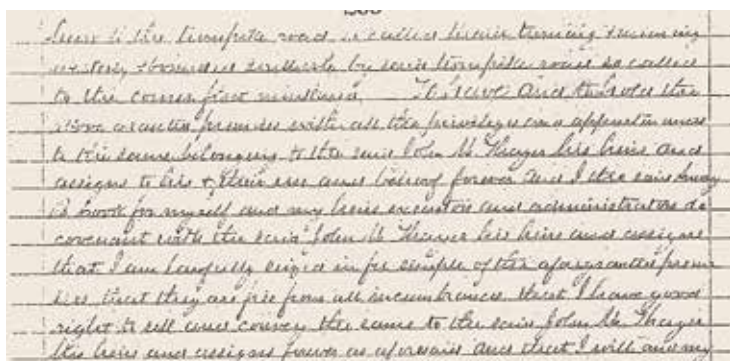 to the turnpike road so called thence turning & running
westerly & bounded southerly by said turnpike road so called
to the corner first mentioned. To have and to hold the
above granted premises with all the privileges and appurtenances
to the same belonging to the said John M Thayer his heirs and
assigns to his & their use and behoof forever and I the said
for myself and my heirs executors and administrators do
covenant with the said John M Thayer his heirs and assigns
that I am lawfully seized in fee simple of the aforegranted prem
ises, that they are free from all incumbrances, that I have good
right to sell and convey the same to the said John M. Thayer
his heirs and assigns forever as aforesaid and that I will and my